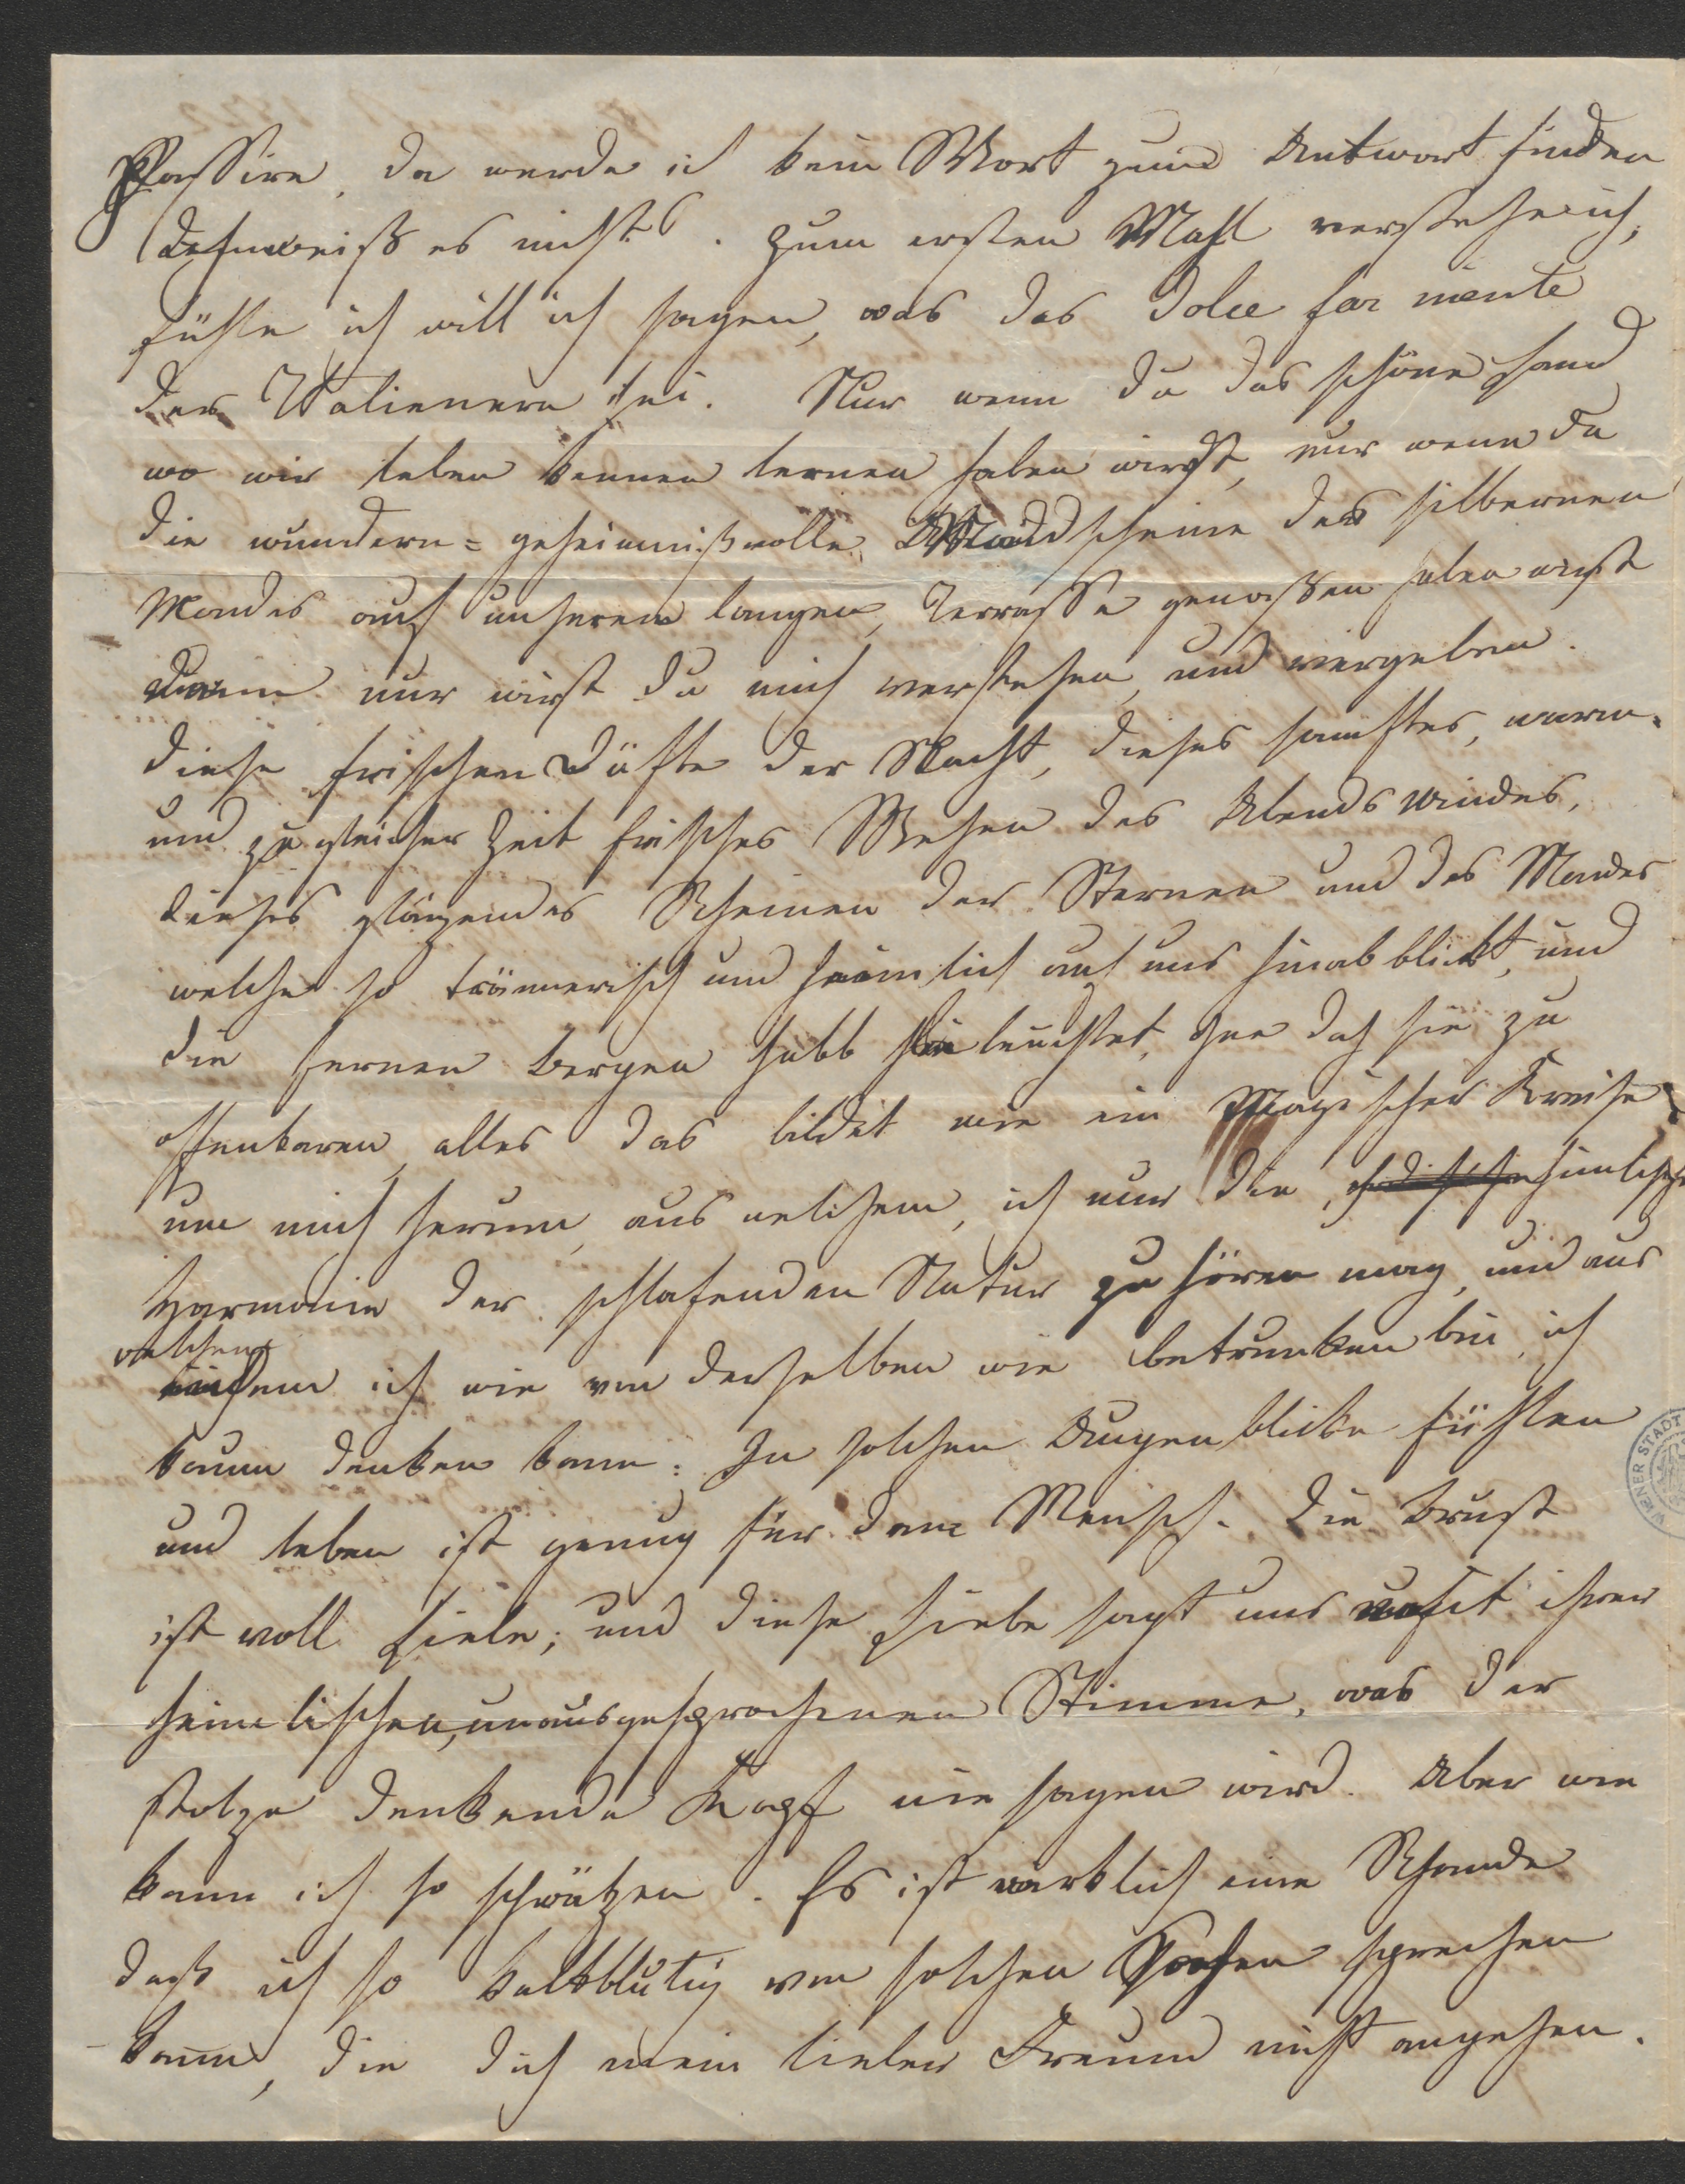 Passire, da werde ich kein Wort zum Antwort finden
Ich weiß es nicht. Zum ersten Mahl verstehe ich,
fühle ich will ich sagen, was das Dolce far niente
der Italienern sei. Nur wenn du das schöne Land
wo wir leben kennen lernen haben wirst, nur wenn du
die wundern= geheimnißvolle Mondscheine des silbernen
Mondes auf unseren langen, Terrasse genoßen haben wirst
dann nur wirst du mich verstehen, und vergeben.
diese frischen Düfte der Nacht, dieses sanftes, warm-
und zu gleicher Zeit frisches Wehen des Abends Windes,
dieses glänzendes Scheinen der Sternen und des Mondes
welche so träumerisch und heimlich auf uns hinabblickt, und
die fernen Bergen halb leuchtet, ohne daß sie zu
offenbaren, alles das bildet wie ein Magischer Kreise
um mich herum, aus welchem, ich nur die himlische
Harmonie der schlafenden Natur zu hören mag, und aus
welchem ich wie von derselben wie betrunken bin, ich
kaum denken kann: In solchen Augenblicke fühlen
und leben ist genug für dem Mensch. Die Brust
ist voll Liebe; und diese Liebe sagt uns mit ihrer
heimlischen, unausgesprochenen Stimme, was der
stolze denkende Kopf nie sagen wird. Aber wie
kann ich so schwätzen. Es ist wirklich eine Schande
daß ich so kaltblutig von solchen Sachen sprechen
kann, die dich mein lieber Freund nicht angehen.
WIENER STADT